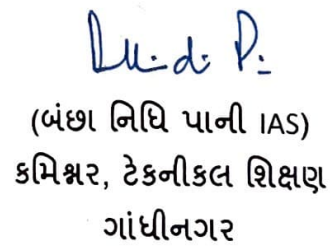 (બંછા નિધિ પાની IAS)
કમિશ્નર, ટેકનીકલ શિક્ષણ
ગાંધીનગર